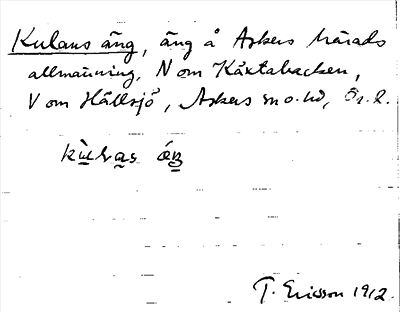 Kulans äng, äng å Askers härads
allmänning, N om Kåxtabacken,
V om Hällsjö, Askers sn o. hd, Ör. l.
kùlas áŋ
T. Ericsson 1912.